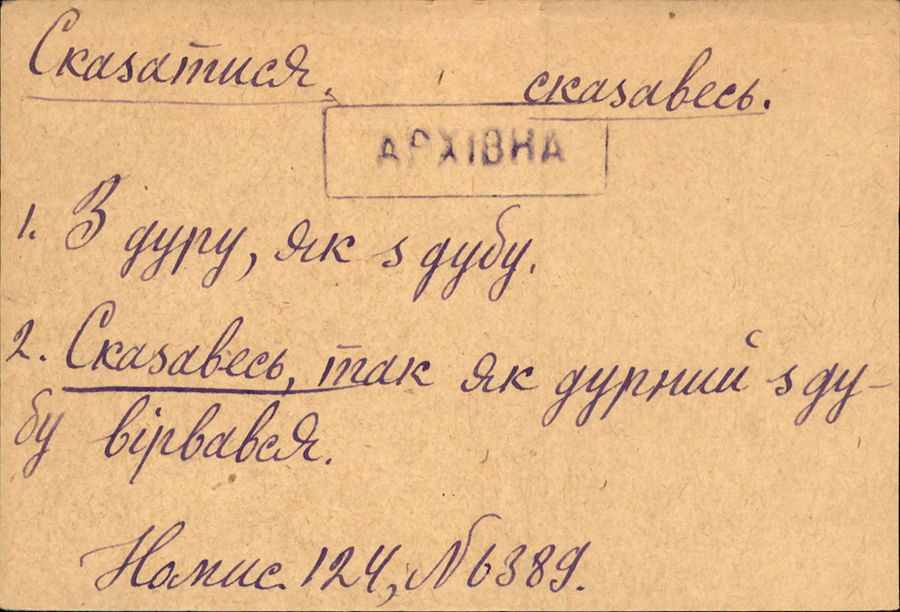 Сказатися, сказавесь.
АРХІВНА
1. З дуру, як з дубу.
2. Сказавесь, так як дурний з ду-
бу вірвався.
Номис. 124, № 6389.